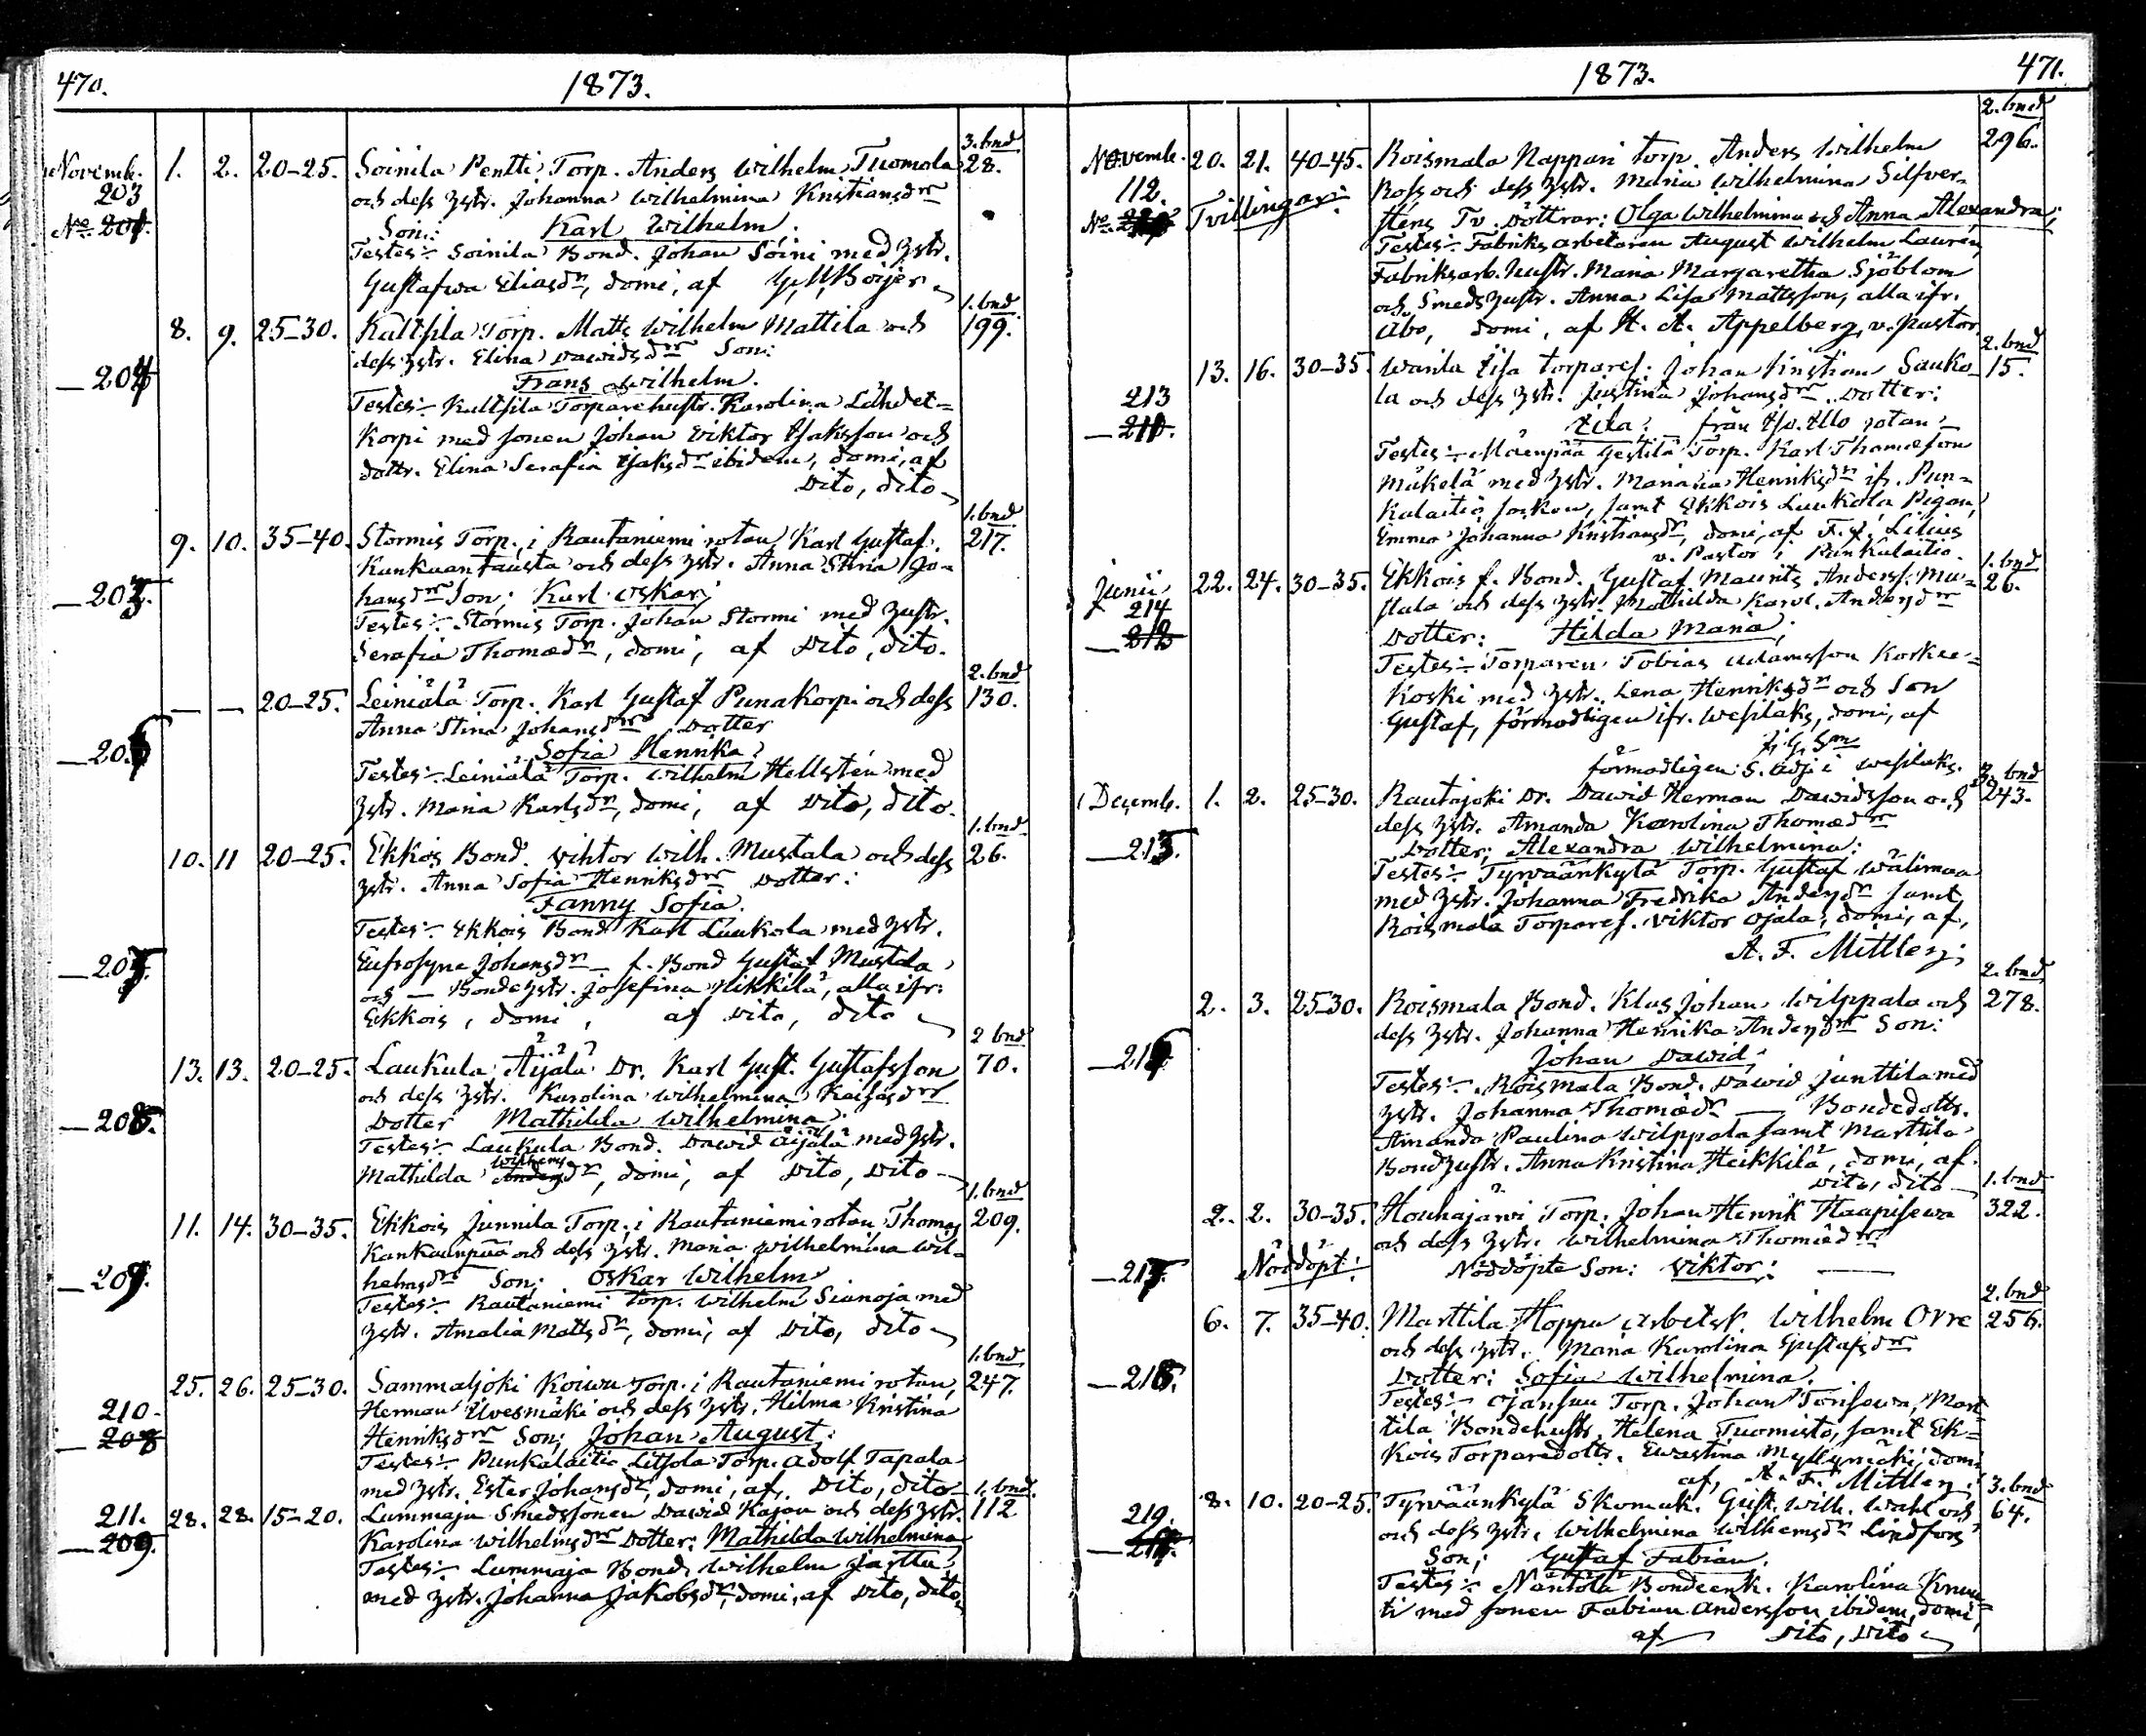 470.
1873.
Novemb. 1. 2. 20–25. Soinila Pentti Torp. Anders Wilhelm Tuomola 3. bnd 28.
203
No. 201.
och dess hstr. Johanna Wilhelmina Kristiansdr
Son: Karl Wilhelm.
Testes: Soinila Bond. Johan Soini med hstr.
Gustafwa Eliasdr, domi, af Boijer
8. 9. 25–30. Kulttila Torp. Matts Wilhelm Mattila och 1. bnd 199.
dess hstr. Elina Dawidsdr Son:
— 204
Frans Wilhelm.
Testes: Kulttila Torparehustr. Karolina Lähdet=
korpi med sonen Johan Wiktor Isaksson och
dottr. Elina Serafia Isaksdr ibidem, domi, af
Dito, dito
9. 10. 35–40. Stormis Torp. i Rautaniemi rotan Karl Gustaf 1. bnd 217.
Kankaantausta och dess hstr. Anna Stina Jo=
— 205.
hansdr Son: Karl Oskar;
Testes: Stormis Torp. Johan Stormi med hustr.
Serafia Thomædr, domi, af Dito, dito.
— — 20–25. Leiniälä Torp. Karl Gustaf Punakorpi och dess 2. bnd 130.
Anna Stina Johansdr Dotter
— 206
Sofia Henrika
Testes: Leiniälä Torp. Wilhelm Hellstén med
hstr. Maria Karlsdr, domi, af Dito, dito.
10. 11 20–25. Ekkois Bond. Wiktor Wilh. Mustala och dess 1. bnd 26.
hstr. Anna Sofia Henriksdr Dotter:
Fanny Sofia.
Testes: Ekkois Bond Karl Laukola med hstr.
— 207.
Eufrosyne Johansdr — f. Bond Gustaf Mustala
och — Bondehstr. Josefina Hikkilä, alla ifr.
Ekkois, domi, af Dito, dito
13. 13. 20–25. Laukula Äijälä Dr. Karl Gust. Gustafsson 2 bnd 70.
och dess hstr. Karolina Wilhelmina
— 208.
Dotter Mathilda Wilhelmina.
Testes: Laukula Bond. Dawid Äijälä med hstr.
Mathilda Wilhelmsdr, domi, af Dito, dito
11. 14. 30–35. Ekkois Junnila Torp. i Rautaniemi rotan, Thomas 1. bnd 209.
Kankaanpää och dess hstr. Maria Wilhelmina Wil=
— 209.
helmsdr Son: Oskar Wilhelm
Testes: Rautaniemi Torp. Wilhelm Sianoja med
hstr. Amalia Mattsdr, domi, af Dito, dito
25. 26. 25–30. Sammaljoki Koiwu Torp. i Rautaniemi rotan, 1. bnd 247.
210.
— 208
Herman Uvesmäki och dess hstr. Hilma Kristina
Henriksdr Son: Johan August:
Testes: Punkalaitio Liitsola Torp. Adolf Tapala
med hstr. Ester Johansdr, domi, af, Dito, dito
211. 28. 28. 15–20. Lummaja Smedssonen Dawid Kajan och dess hstr. 1. bnd. 112
— 209.
Karolina Wilhelmsdr Dotter: Mathilda Wilhelmina
Testes: Lummaja Bond. Wilhelm Jarttu
med hstr. Johanna Jakobsdr, domi, af Dito, dito
1873.
471.
Novemb. 20. 21. 40–45. Roismala Nappari Torp. Anders Wilhelm 2. bnd 296.
112. Tvillingar: Ross och dess hstr. Maria Wilhelmina Silfver=
No.
stens Tv. Döttrar: Olga Wilhelmina och Anna Alexandra;
Testes: Fabriksarbetaren August Wilhelm Lauren,
Fabriksarb. hustr. Maria Margaretha Sjöblom
och Smeds hustr. Anna Lisa Mattsson, alla ifr.
Åbo, domi, af K. A. Appelberg, v. Pastor.
13. 16. 30–35. Wanila Eisa torparef. Johan Kristian Sauko= 2. bnd 15.
213
— 210.
la och dess hstr. Justina Johansdr Dotter:
Eda: från Illo rotan
Testes: Mäenpää Yestilä Torp. Karl Thomæson
Mäkelä med hstr. Mariana Henriksdr ifr. Pun=
kalaitio socken, samt Ekkois Laukola Pigan,
Emma Johanna Kristiansdr, domi, af F. J. Lilius
v. Pastor i Punkalaitio.
Junii 22. 24. 30–35. Ekkois f. Bond. Gustaf Maurits Anderss. Mu= 1. bnd 26.
214
— 212
stala och dess hstr. Mathilda Karol. Andersdr
Dotter: Hilda Maria;
Testes: Torparen Tobias Adamsson Korkee=
koski med hstr. Lena Henriksdr och Son
Gustaf, förmodligen ifr. Wesilaks, domi, af
förmodligen S. Adj. i Wesilaks.
Decemb. 1. 2. 25–30. Rautajoki Dr. Dawid Herman Dawidsson och 3. bnd 243.
dess hstr. Amanda Karolina Thomædr
— 215.
Dotter: Alexandra Wilhelmina:
Testes: Tyrväänkylä Torp. Gustaf Wälimaa
med hstr. Johanna Fredrika Andersdr samt
Roismala Torparef. Viktor Ojala, domi, af,
A. F. Mittler;
2. 3. 25–30. Roismala Bond. Klas Johan Wilppala och 2. bnd 278.
dess hstr. Johanna Henrika Andersdr Son:
— 216
Johan Dawid;
Testes: Roismala Bond. Dawid Junttila med
hstr. Johanna Thomædr — Bondedottr.
Amanda Paulina Wilppala samt Marttila
Bondhustr. Anna Kristina Heikkilä, domi, af
Dito, dito
2. 2. 30–35. Houhajärvi Torp. Johan Henrik Haapisewa 1. bnd 322.
och dess hstr. Wilhelmina Thomædr
— 217. Nöddöpt: Nöddöpte Son: Viktor:
6. 7. 35–40. Marttila Hoppu arbetsk. Wilhelm Orre 2. bnd 256.
och dess hstr. Maria Karolina Gustafsdr
— 218.
Dotter: Sofia Wilhelmina.
Testes: Ojansuu Torp. Johan Torisewa, Mart=
tila Bondehustr. Helena Tuomisto, samt Ek=
kois Torparedottr. Ewastina Myllymäki, domi
af, A. F. Mittler;
8. 10. 20–25. Tyrväänkylä Skomak. Gust. Wilh. Wahl och 3. bnd 64.
219.
och dess hstr. Wilhelmina Wilhemsdr Lindfors
Son; Gustaf Fabian.
Testes: Näntölä Bondeenk. Karolina Knuu=
ti med sonen Fabian Andersson ibidem, domi,
af Dito, Dito